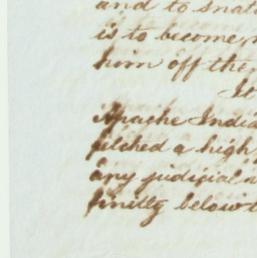 and to snat
is to become
him off the
It
Apache India
pitched a high
any judicial
finitly below